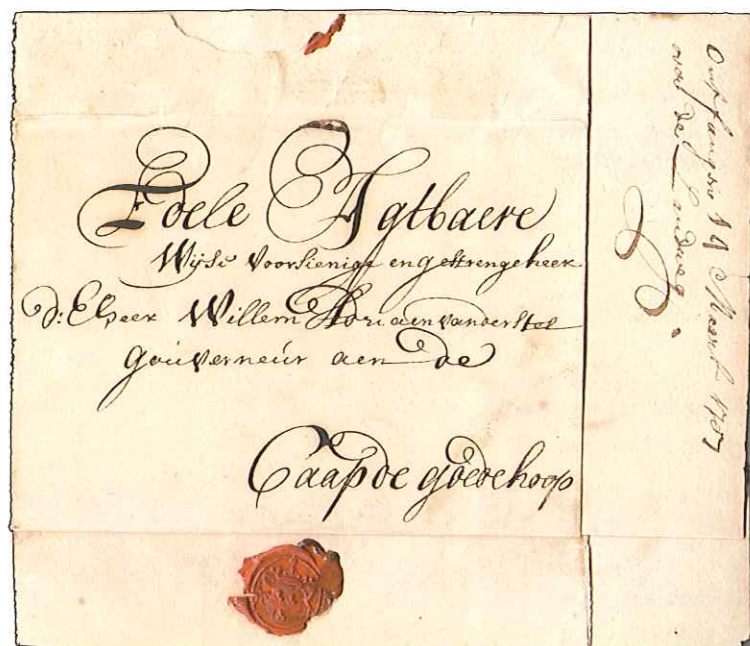 Edele Agtbaere
Wijse voorsienige en gestrenge heer
d: E heer Willem Adriaen van der stel
gouverneur aen de
Caap de goede hoop
Ontfangen 14 Maart 1707
over de Landweg.